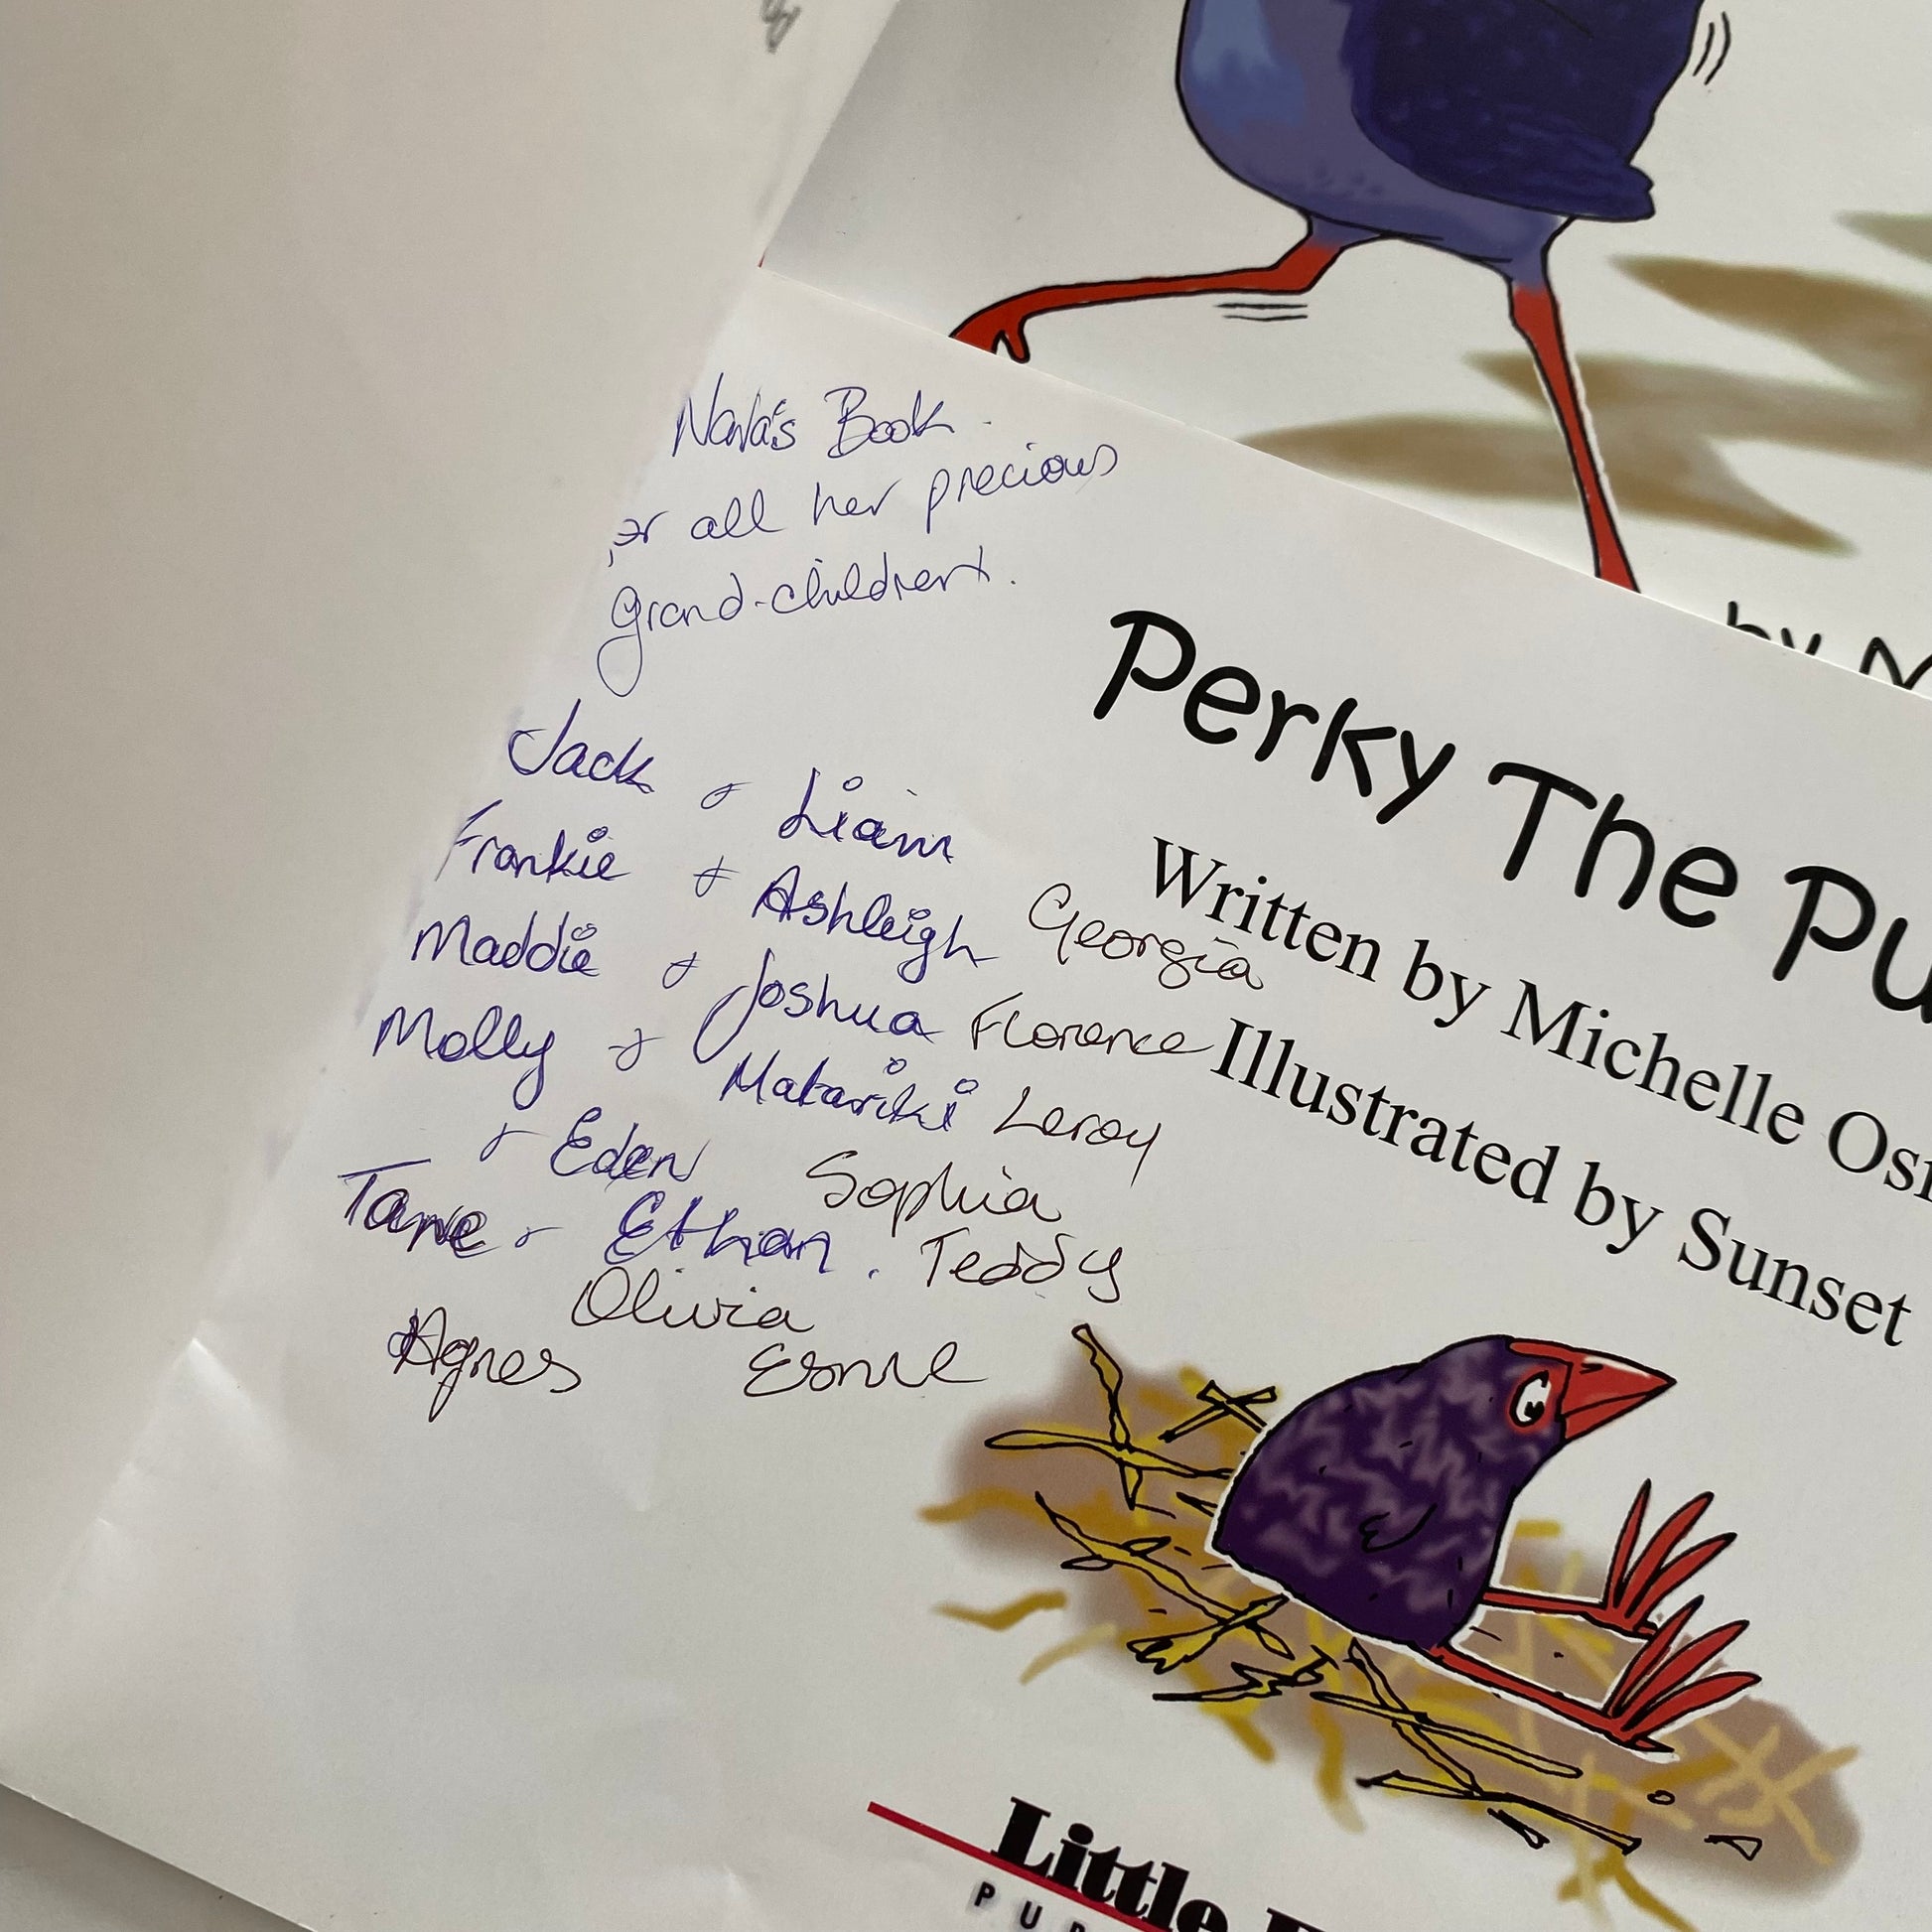 Nana's Book.
for all her precious
grand-children.
Jack & Liam
Frankie & Ashleigh Georgia
Maddie & Joshua Florence
Molly & Matariki Leroy
& Eden Sophia
Tane & Ethan. Teddy
Olivia
Agnes Esme
by
Perky The Pu
Written by Michelle Os
Illustrated by Sunset
Little
PUB